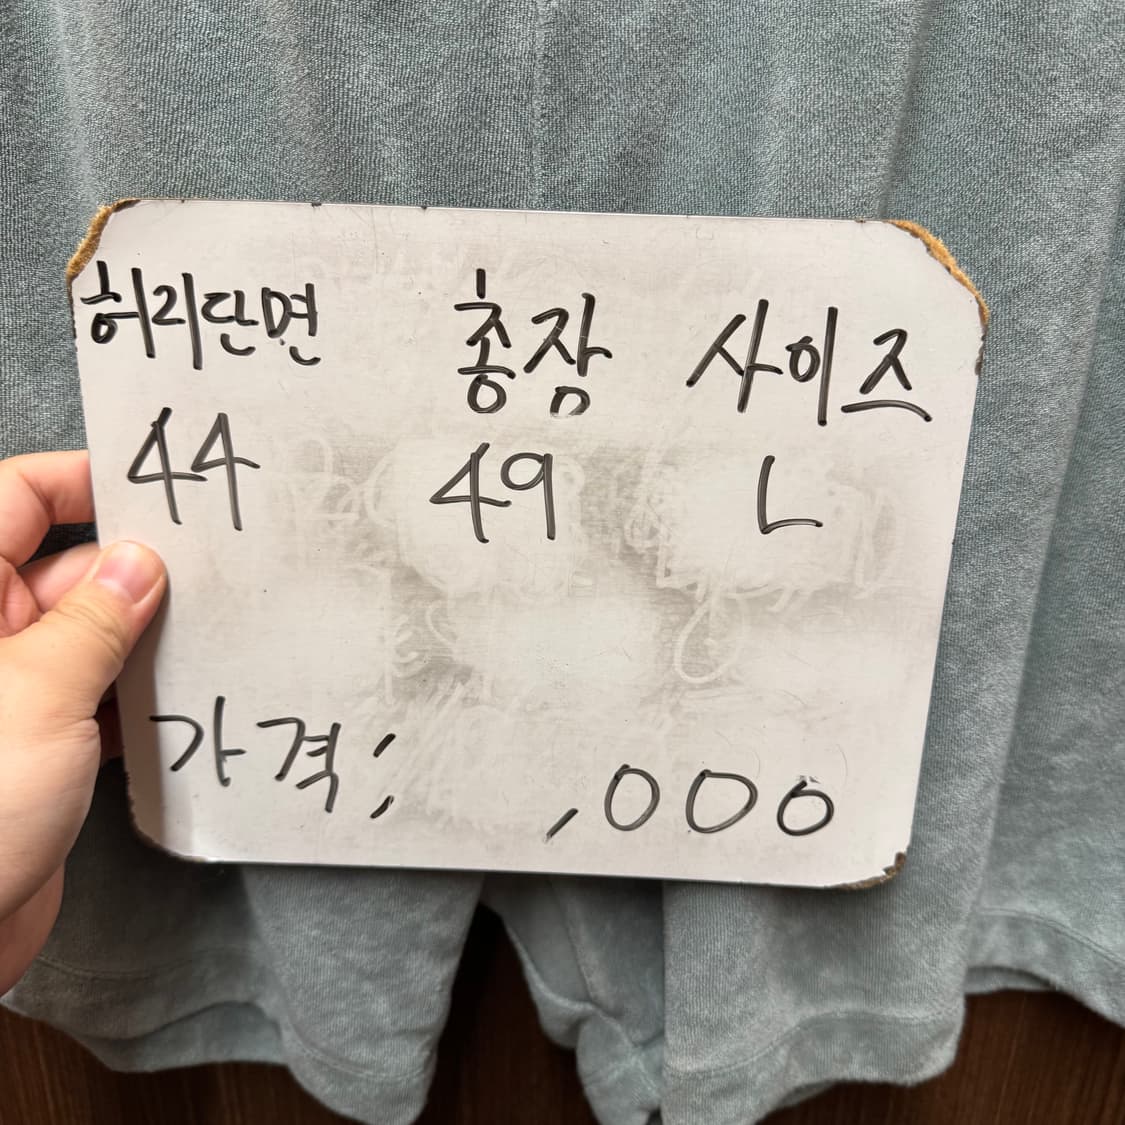 허리단면 총장 사이즈
44 49 L
가격; ,000